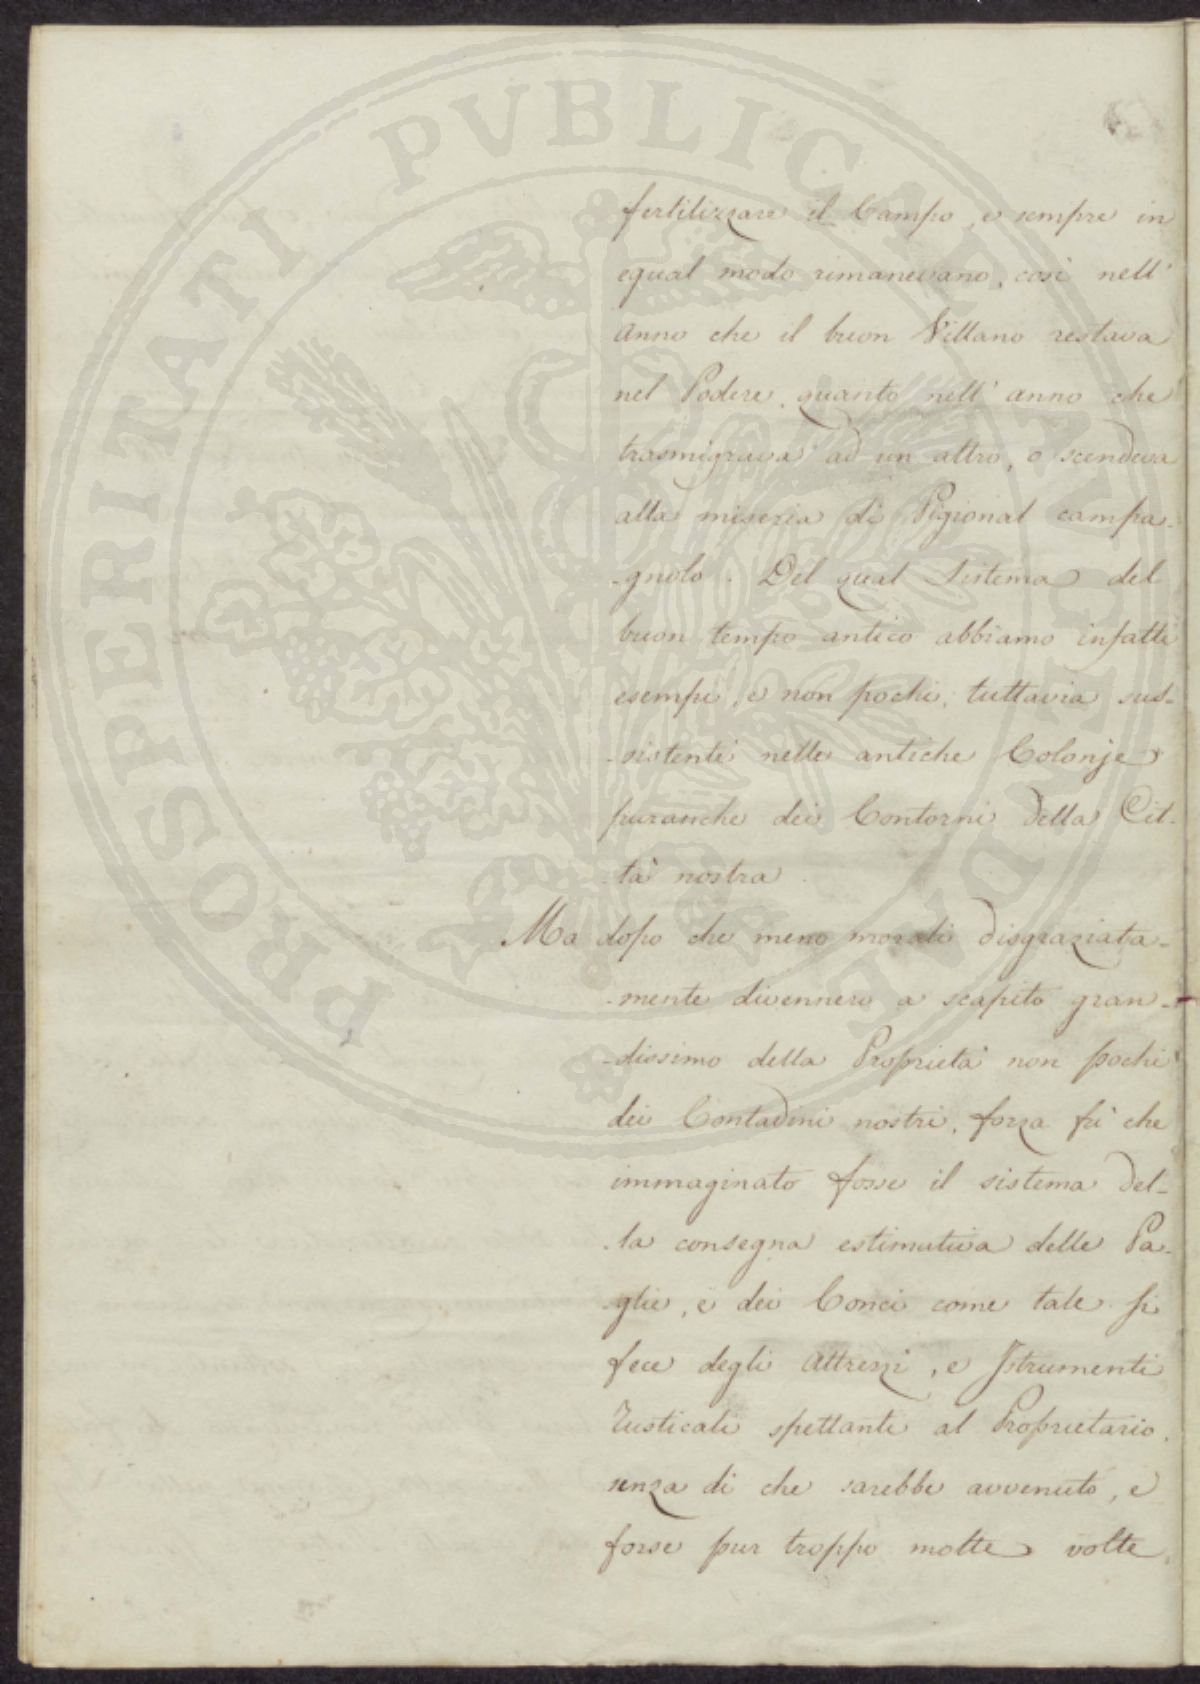 fertilizzare il Campo, e sempre in
egual modo rimanevano, così nell'
anno che il buon Villano restava
nel Podere, quanto nell' anno che
trasmigrava ad un altro, o scendeva
alla miseria di Pigional campa-
-gnolo. Del qual Sistema del
buon tempo antico abbiamo infatti
esempi, e non pochi, tuttavia sus-
-sistenti nelle antiche Colonje
puranche dei Contorni della Cit-
-tà nostra.
Ma dopo che meno morali disgraziata-
-mente divennero a scapito gran-
-dissimo della Proprietà non pochi
dei Contadini nostri, forza fù che
immaginato fosse il sistema del-
-la consegna estimativa delle Pa-
-glie, e dei Conci come tale si
fece degli Attrezzi, e Jstrumenti
rusticali spettanti al Proprietario,
senza di che sarebbe avvenuto, e
forse pur troppo molte volte,
PROSPERITATI PVBLICAE AVGENDAE